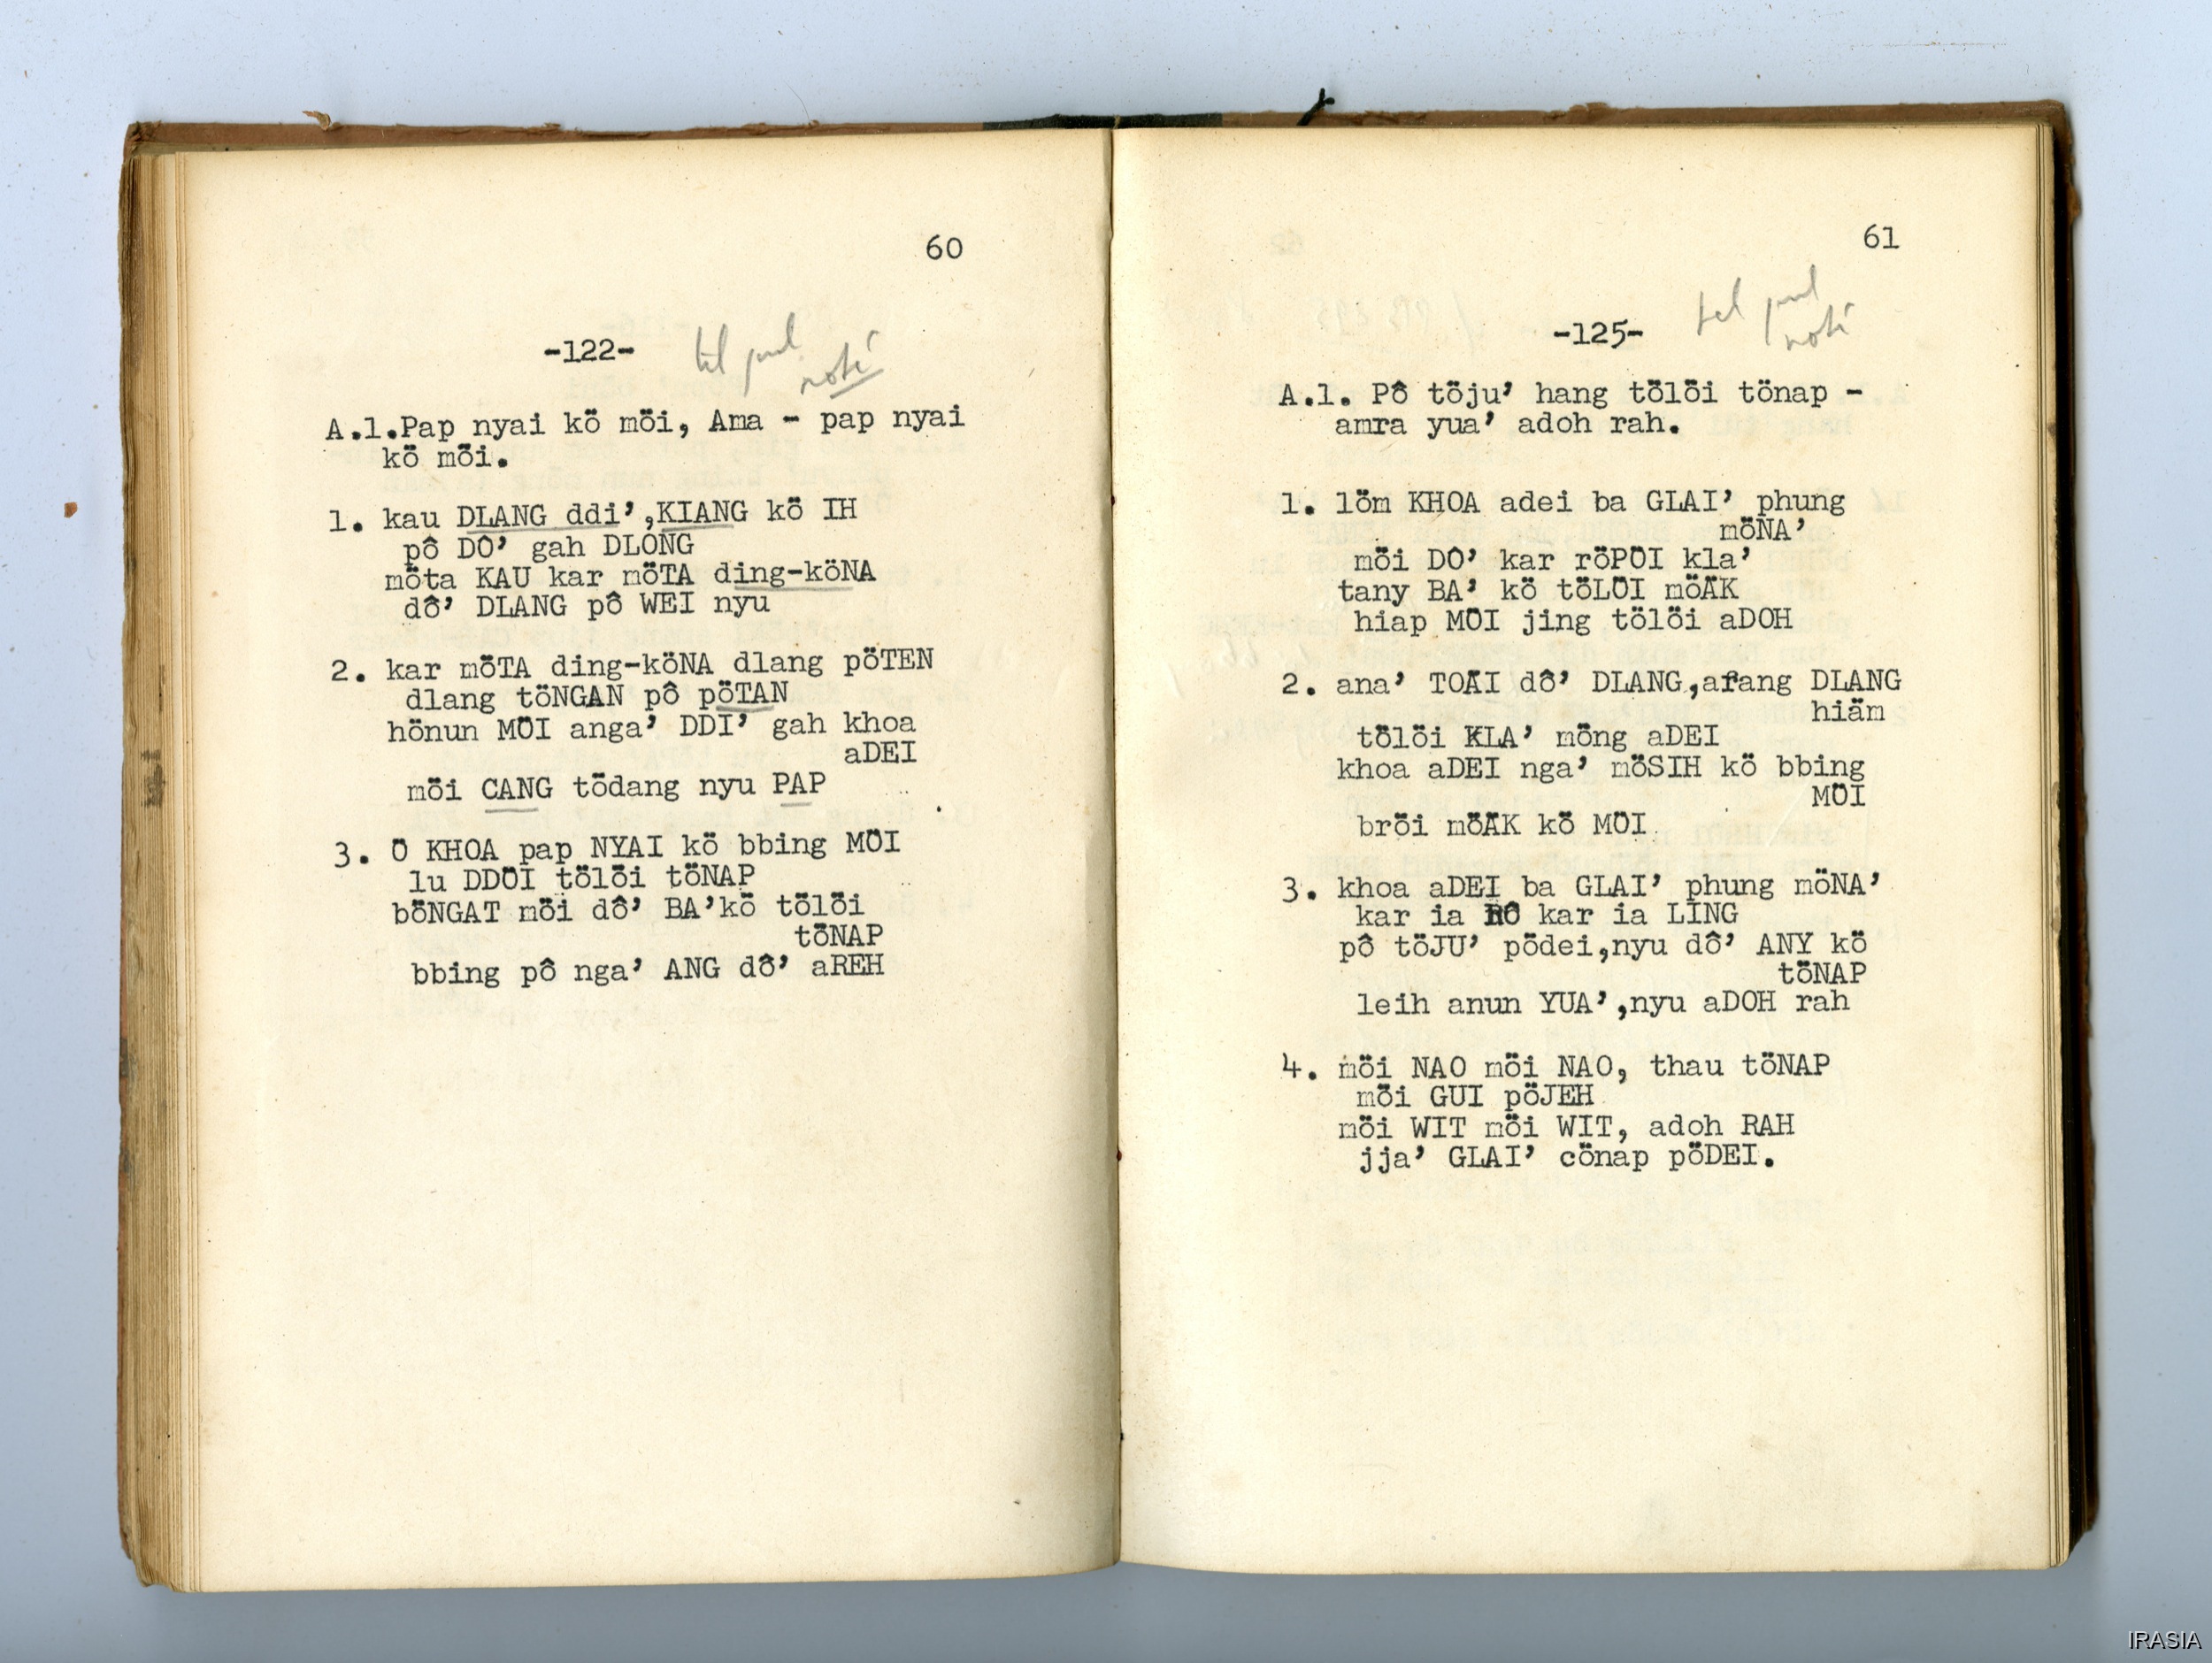 60
-122-
A.1.Pap nyai kö möi, Ama - pap nyai
kö möi.
1. kau DLANG ddi’,KIANG kö IH
pô DÔ’ gah DLONG
möta KAU kar möTA ding-köNA
dô’ DLANG pô WEI nyu
2. kar möTA ding-köNA dlang pöTEN
dlang töNGAN pô pöTAN
hönun MÖI anga’ DDI’ gah khoa
aDEI
möi CANG tödang nyu PAP
3. Ö KHOA pap NYAI kö bbing MÖI
lu DDÖI tölöi töNAP
böNGAT möi dô’ BA’kö tölöi
töNAP
bbing pô nga’ ANG dô’ aREH
61
-125-
A.1. Pô töju’ hang tölöi tönap -
amra yua’ adoh rah.
1. löm KHOA adei ba GLAI’ phung
möNA’
möi DÔ’ kar röPÖI kla’
tany BA’ kö töLÖI möÄK
hiap MÖI jing tölöi aDOH
2. ana’ TOÄI dô’ DLANG,arang DLANG
hiäm
tölöi KLA’ möng aDEI
khoa aDEI nga’ möSIH kö bbing
MÖI
bröi möÄK kö MÖI
3. khoa aDEI ba GLAI’ phung möNA’
kar ia RÔ kar ia LING
pô töJU’ pödei,nyu dô’ ANY kö
töNAP
leih anun YUA’,nyu aDOH rah
4. möi NAO möi NAO, thau töNAP
möi GUI pöJEH
möi WIT möi WIT, adoh RAH
jja’ GLAI’ cönap pöDEI.
IRASIA